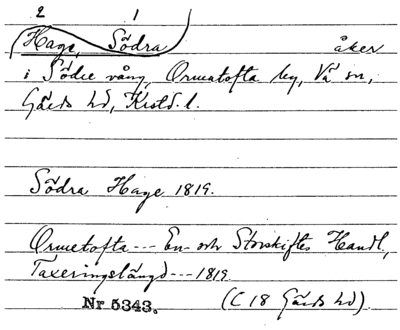 2 1
Hage, Södra åker
i Södre vång, Ormatofta by, Vä sn,
Gärds hd, Kristd. l.
Södra Hage 1819.
Ormetofta --- En- och Storskiftes Handl,
Taxeringslängd --- 1819
Nr 5343. (C 18 Gärds hd).